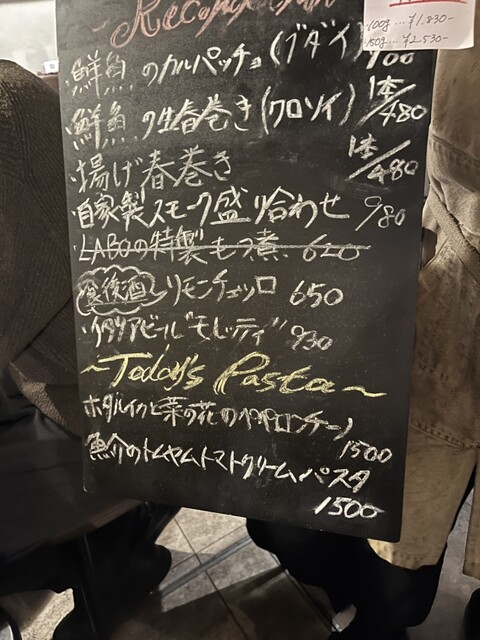 ~Recommendation
100g...¥1,830-
150g...¥2,530-
・鮮魚のカルパッチョ(ブダイ)
・鮮魚の生春巻き(クロソイ) 1本/480
・揚げ春巻き 1本/480
・自家製スモーク盛り合わせ 980
・LABOの特製もつ煮 620
・食後酒 リモンチェッロ 650
・イタリアビール"モレッティ" 930
~Today's Pasta~
・ホタルイカと菜の花のペペロンチーノ
1500
・魚介のトムヤムトマトクリームパスタ
1500